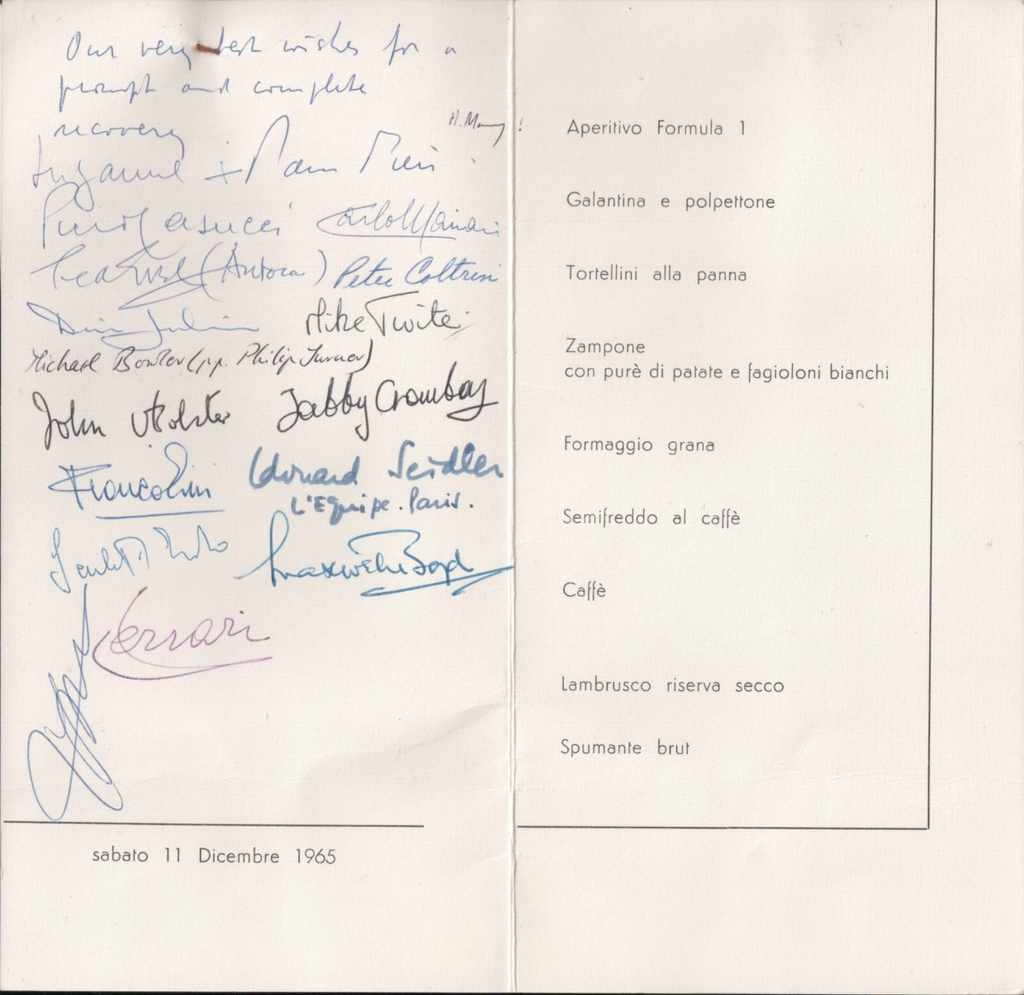 Our very best wishes for a
prompt and complete
recovery
Suzanne +
Piero Casucci
(Autocar) Peter Coltrin
Mike Twite
Michael Bowler (pp. Philip Turner)
John Jabby Crombac
Edouard Seidler
L'Equipe. Paris.
Maxwell Boyd
Ferrari
sabato 11 Dicembre 1965
Aperitivo Formula 1
Galantina e polpettone
Tortellini alla panna
Zampone
con purè di patate e fagioloni bianchi
Formaggio grana
Semifreddo al caffè
Caffè
Lambrusco riserva secco
Spumante brut